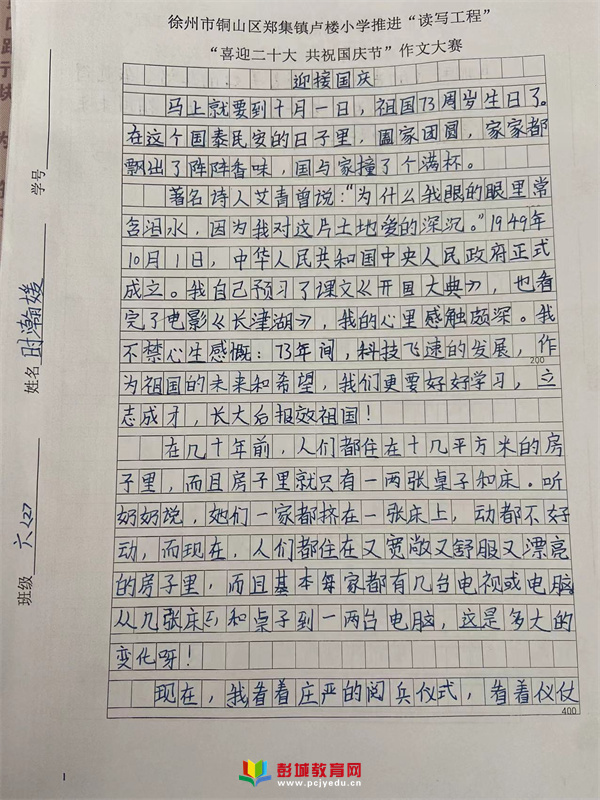 徐州市铜山区郑集镇卢楼小学推进“读写工程”
“喜迎二十大 共祝国庆节”作文大赛
迎接国庆
马上就要到十月一日，祖国73周岁生日了。
在这个国泰民安的日子里，阖家团圆，家家都
飘出了阵阵香味，国与家撞了个满杯。
著名诗人艾青曾说：“为什么我眼的眼里常
含泪水，因为我对这片土地爱的深沉。”1949年
10月1日，中华人民共和国中央人民政府正式
成立。我自己预习了课文《开国大典》，也看
完了电影《长津湖》，我的心里感触颇深。我
不禁心生感慨：73年间，科技飞速的发展，作
200
为祖国的未来和希望，我们更要好好学习，立
志成才，长大后报效祖国！
在几十年前，人们都住在十几平方米的房
子里，而且房子里就只有一两张桌子和床。听
奶奶说，她们一家都挤在一张床上，动都不好
动，而现在，人们都住在又宽敞又舒服又漂亮
的房子里，而且基本每家都有几台电视或电脑
从几张床和桌子到一两台电脑，这是多大的
变化呀！
现在，我看着庄严的阅兵仪式，看着仪仗
400
学号
姓名 时瀚媛
班级 六
1
彭城教育网
www.pcjyedu.cn